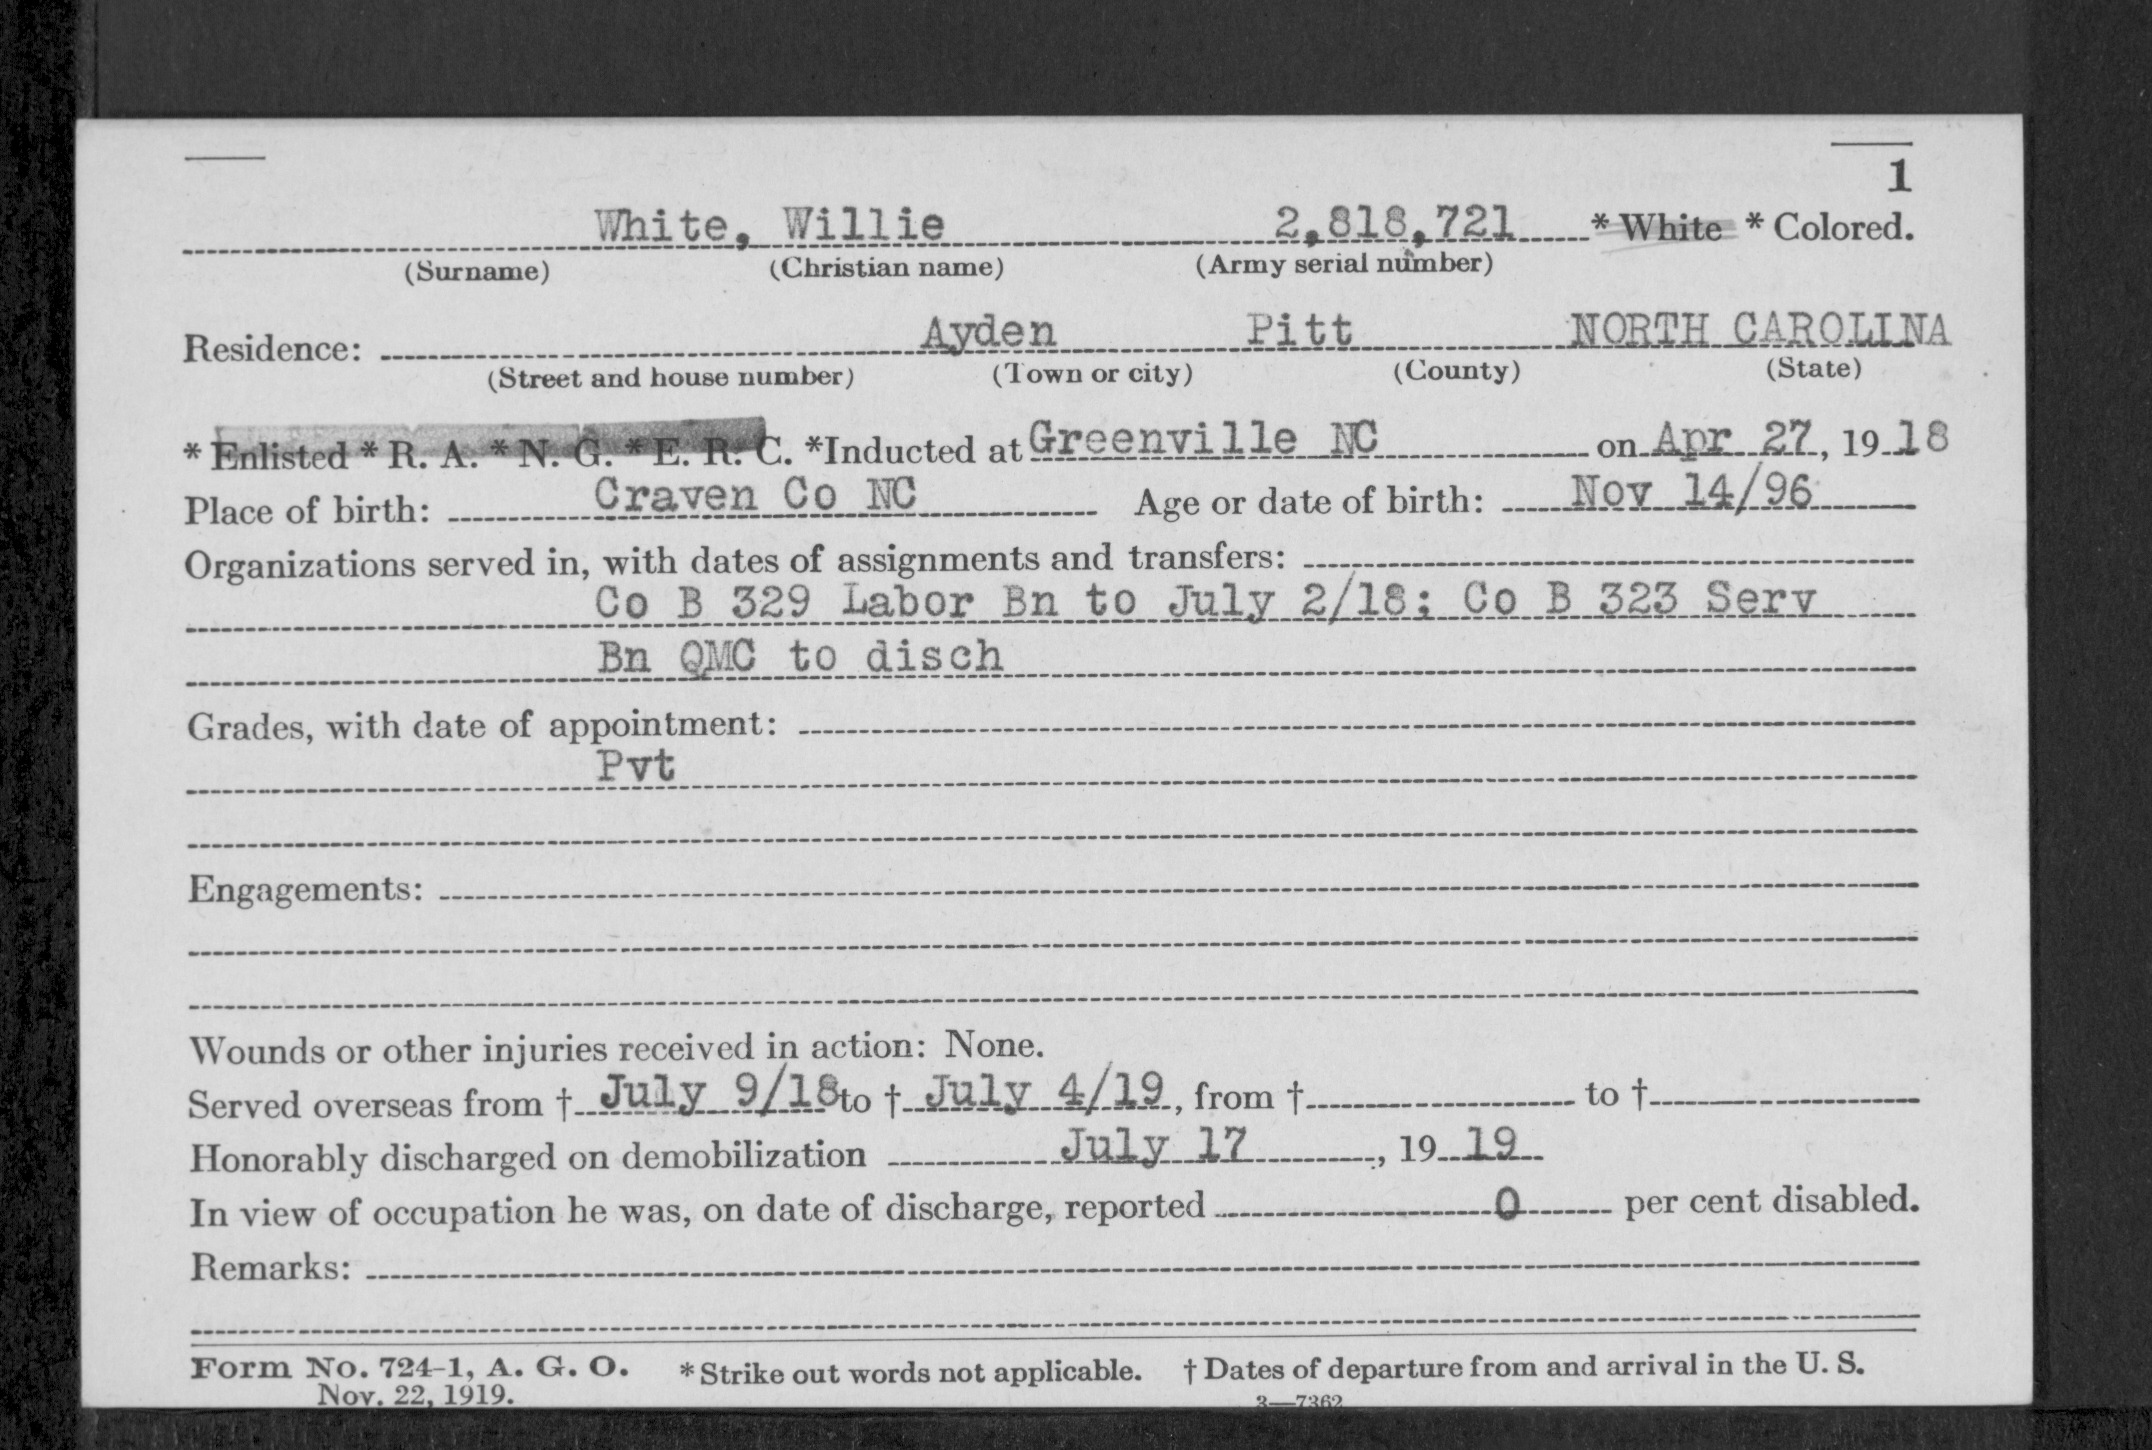 1
White, Willie 2,818,721 * White * Colored.
(Surname) (Christian name) (Army serial number)
Residence: Ayden Pitt NORTH CAROLINA
(Street and house number) (Town or city) (County) (State)
* Enlisted * R. A. * N. G. * E. R. C. *Inducted at Greenville NC on Apr 27, 1918
Place of birth: Craven Co NC Age or date of birth: Nov 14/96
Organizations served in, with dates of assignments and transfers:
Co B 329 Labor Bn to July 2/18; Co B 323 Serv
Bn QMC to disch
Grades, with date of appointment:
Pvt
Engagements:
Wounds or other injuries received in action: None.
Served overseas from † July 9/18 to † July 4/19, from † to †
Honorably discharged on demobilization July 17, 1919
In view of occupation he was, on date of discharge, reported 0 per cent disabled.
Remarks:
Form No. 724-1, A. G. O. * Strike out words not applicable. † Dates of departure from and arrival in the U. S.
Nov. 22, 1919. 3—7362